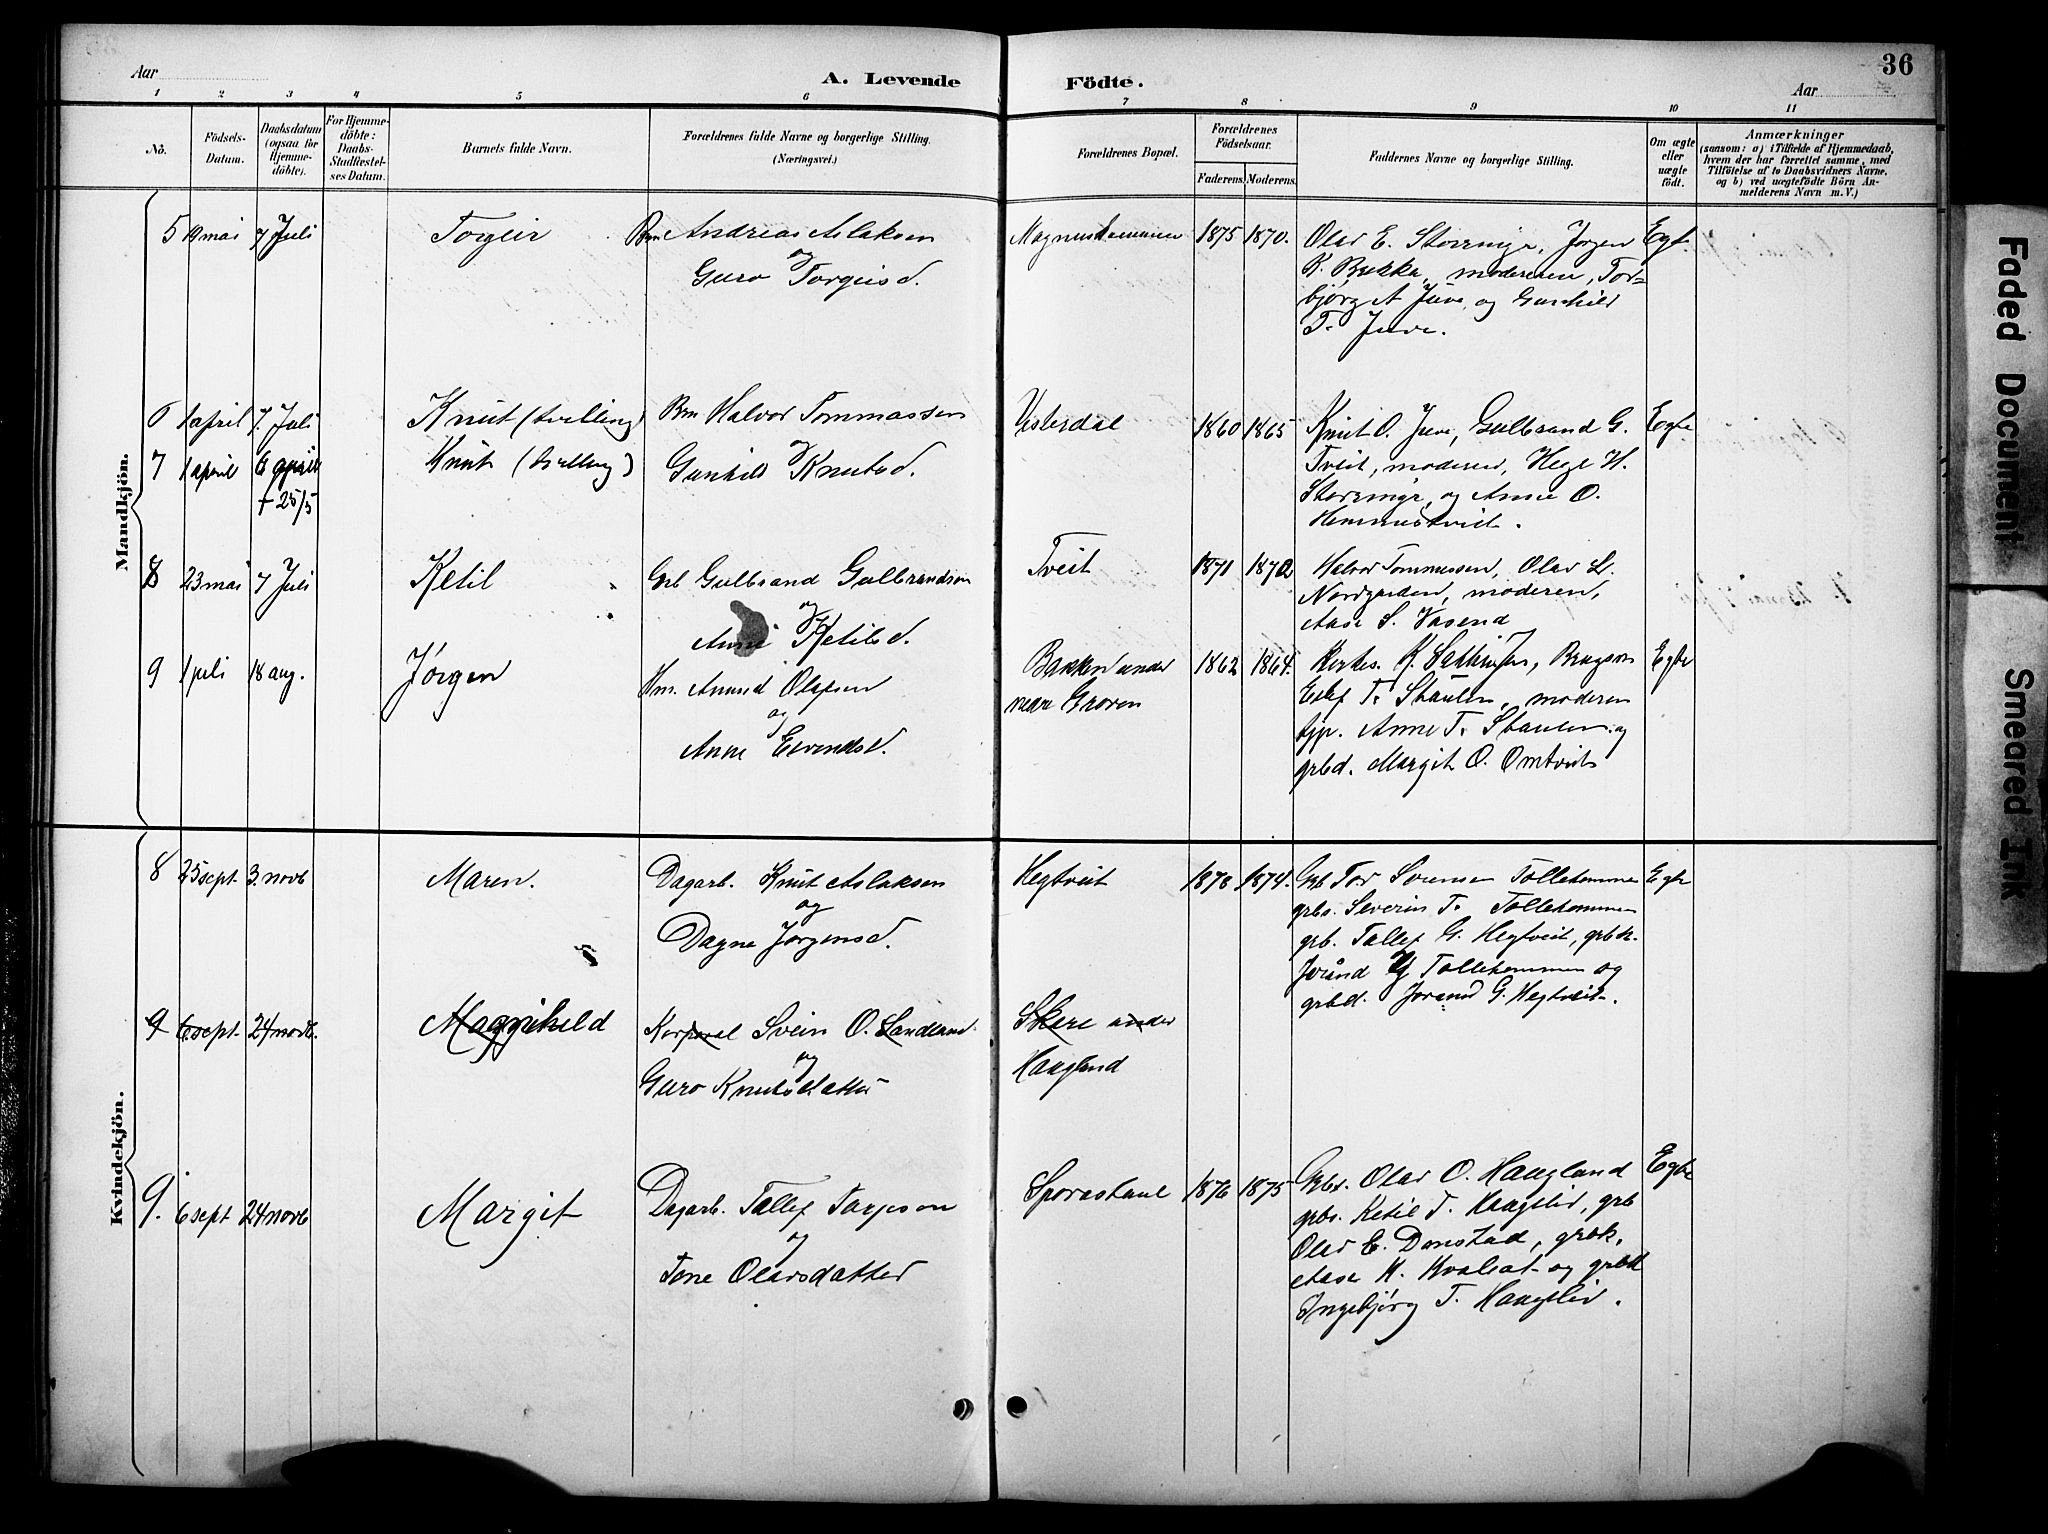 36
Aar
A. Levende
Födte.
Aar
1 2 3 4 5 6 7 8 9 10 11
No.
Födsels-
Datum.
Daabsdatum
(ogsaa for
Hjemme-
döbte).
For Hjemme-
döbte:
Daabs-
Stadfæstel-
ses Datum.
Barnets fulde Navn.
Forældrenes fulde Navne og borgerlige Stilling.
(Næringsvei.)
Forældrenes Bopæl.
Forældrenes
Födselsaar.
Faderens. Moderens.
Faddernes Navne og borgerlige Stilling.
Om ægte
eller
uægte
födt.
Anmærkninger
(saasom: a) i Tilfælde af Hjemmedaab,
hvem der har forrettet samme, med
Tilföielse af to Daabsvidners Navne,
og b) ved uægtefödte Börn An-
melderens Navn m. V.)
Mandkjön.
5 19 mai 7 Juli Torgeir Bm Andreas Aslaksen
og
Guro Torgeisd.
1875 1870.
Olav E. Storemyr, Jørgen
K. Bukka, moderen, Tor-
bjørg A Juve, og Gunhild
T. Juve.
Egte
6 1 april 7. Juli Knut (tvilling) Bm Halvor Tommassen
7 1 april 6 april Knut (tvilling) og
Gunhild Knutsd.
+ 25/5
Vesterdal 1860 1865
Knut O. Juve, Gulbrand G.
Tveit, moderen, Hege H.
Storemyr, og Anne O.
Hemmestveit.
Egte
8 23 mai 7 Juli Ketil Grb Gulbrand Gulbrandsen
og
Anne Ketilsd.
Tveit 1871 1872
Halvor Tommassen, Olav L.
Nordgarden, moderen,
Aase S. Vasend
9 1 juli 18 aug. Jørgen Hm. Amund Olafsen
og
Anne Eivendsd.
Bakken under
nedre Groven
1862 1864.
Eilef T. Staulen, moderen
tjp. Anne T. Staulen og
grbd. Margit O. Omtveit
Egte
Kvindekjön.
8 25 sept 3. novb Maren. Dagarb. Knut Aslaksen
og
Dagne Jørgensd.
Hegtveit 1878 1874.
Grb Tor Svensen Tollekommen
grbs. Severin T. Tollekommen
grb. Tallef G. Hegtveit, grbk.
Jorånd Tollekommen og
grbd. Jorand G. Hegtveit.
Egte
9 6 sept 24 novb. Magnhild Korporal Svein O. Landland
og
Guro Knutsdatter
Skare under
Haugland
9. 6 sept 24 novb Margit Dagarb. Tallef Tarjeson
og
Tone Olavsdatter
Sporastaul 1876 1875
Grbs. Olav O. Haugland
grbs. Ketil T. Haugslid, grb
Olav E. Dønstad, grbk.
Aase K. Kvaleat og grbd
Ingebjørg T. Haugslid.
Egte
Faded Document
Smeared Ink